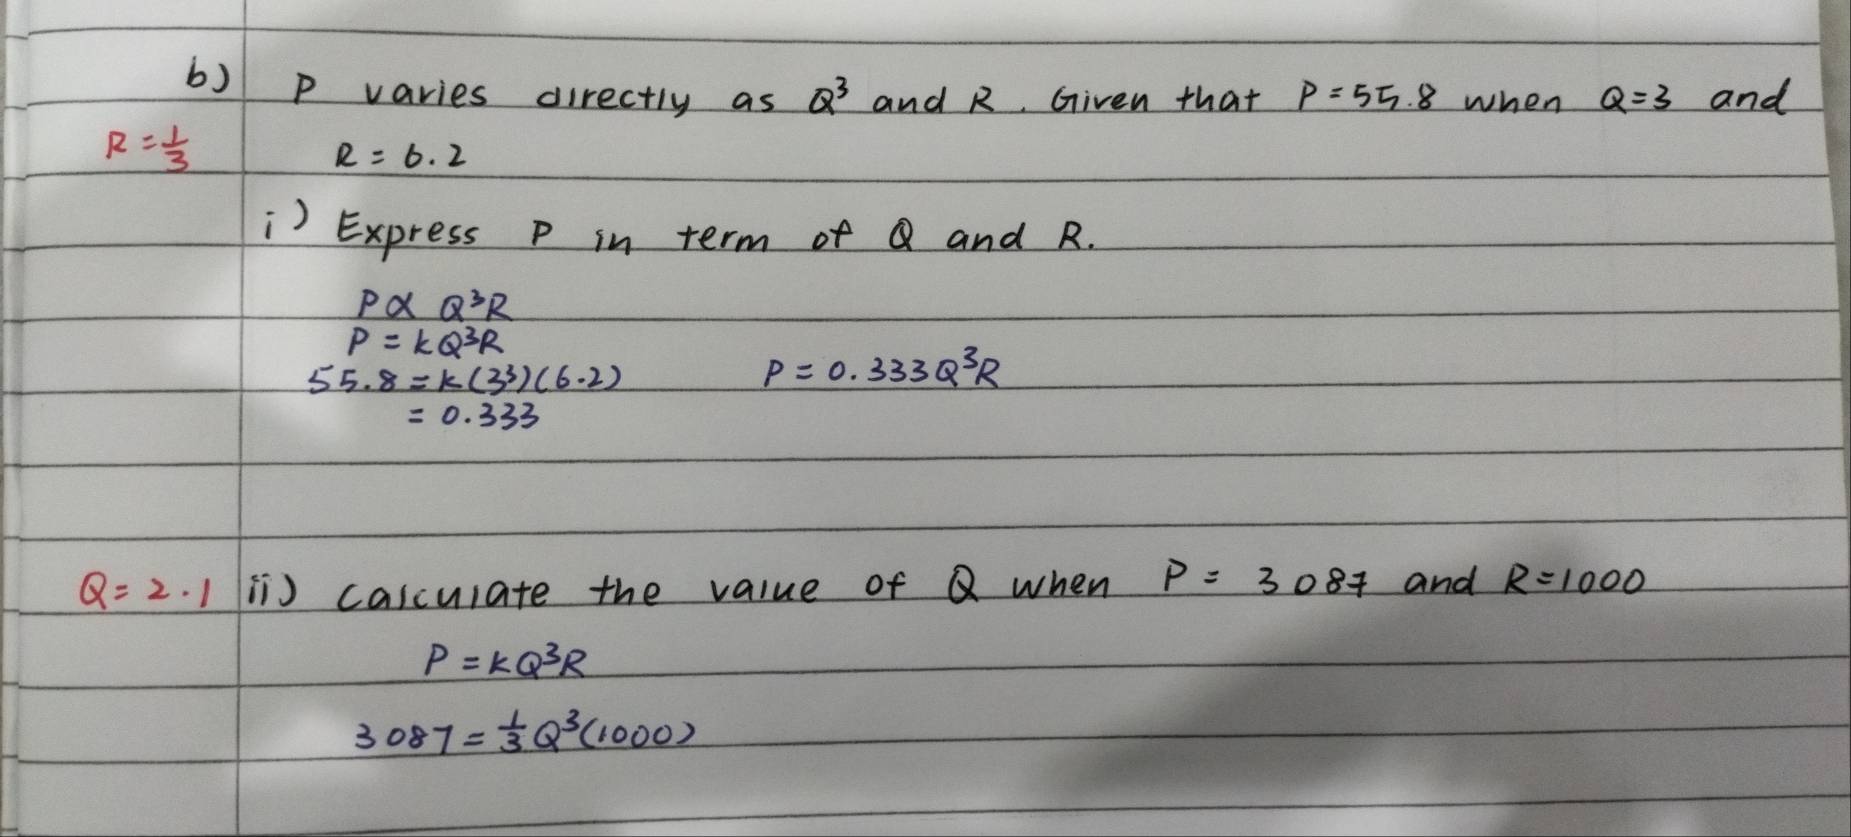 b) P varies directly as Q³ and R. Given that P = 55.8 when Q = 3 and
R = 1/3 R = 6.2
i) Express P in term of Q and R.
P ∝ Q³R
P = kQ³R
55.8 = k(3³)(6.2) P = 0.333Q³R
= 0.333
Q = 2.1 ii) calculate the value of Q when P = 3087 and R = 1000
P = kQ³R
3087 = 1/3 Q³(1000)